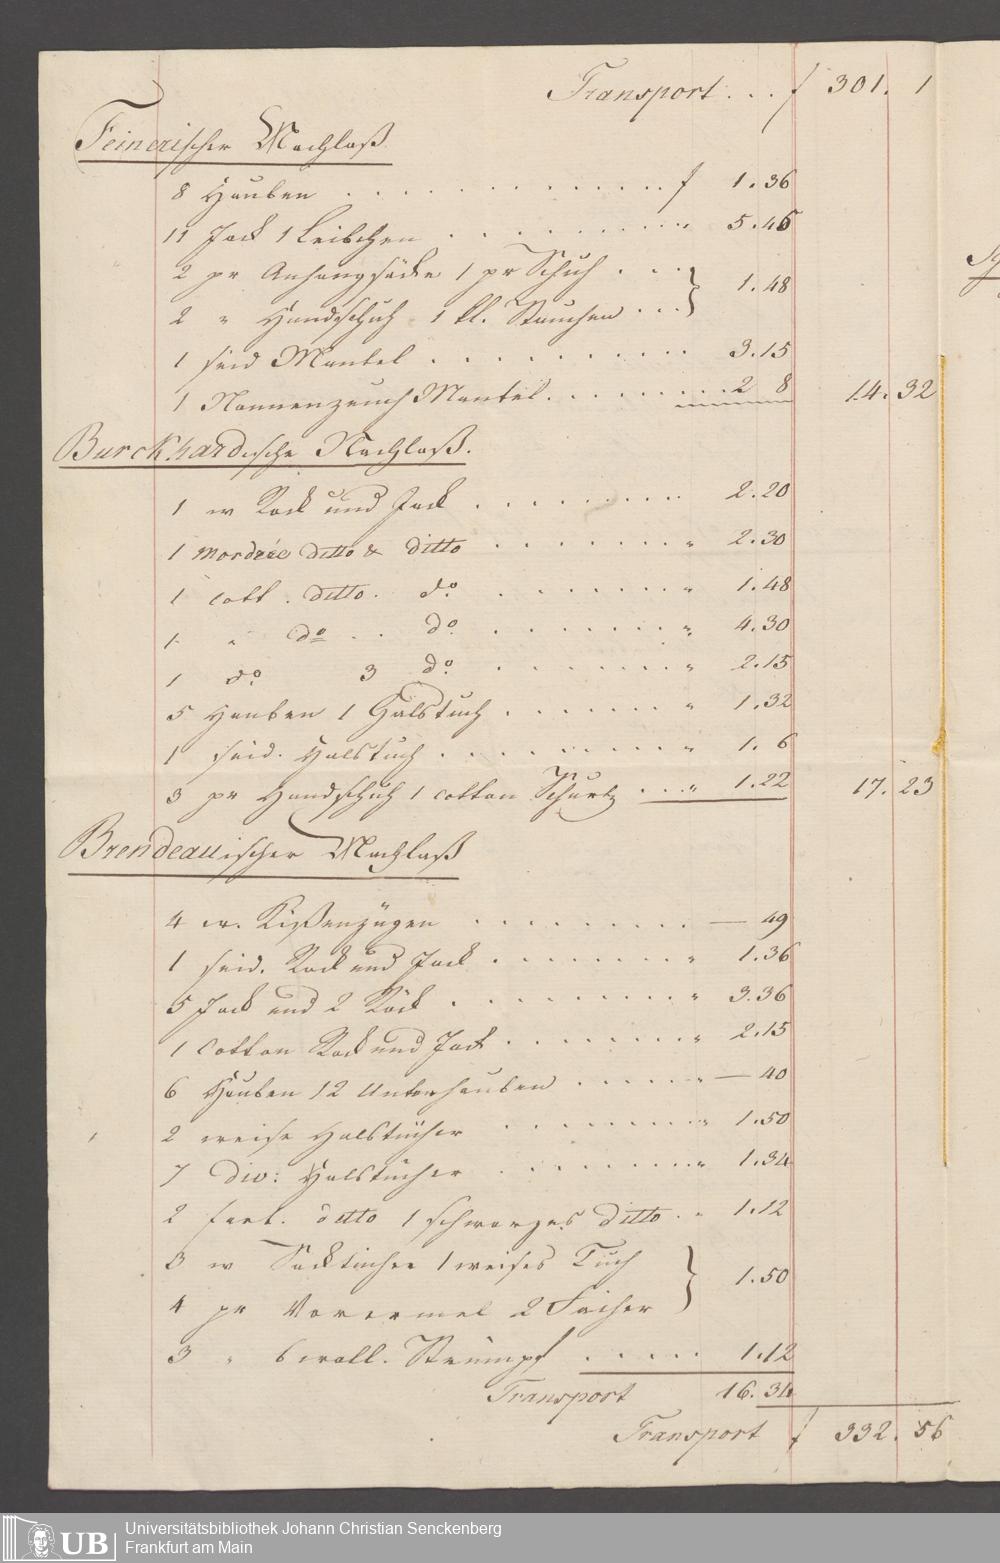 Transport . . . f 301. 1
Feinerischer Nachlaß
8 Hauben . . . . . . . . . . . . . f 1.36
11 Jack 1 Leibchen . . . . . . . . . . " 5.45
2 pr Anhangsäcke 1 pr Schuh . . .
2 " Handschuh 1 kl. Stauchen . . . } 1.48
1 seid Mantel . . . . . . . . . . 3.15
1 Nonnenzeuch Mantel . . . . . . . . 2 8 14.32
Burckhardische Nachlaß.
1 w Rock und Jack . . . . . . . . . 2.20
1 mordeée ditto & ditto . . . . . . . . " 2.30
1 cott. ditto. do. . . . . . . . . " 1.48
1 " do . . do. . . . . . . . . " 4.30
1 do. 3 do. . . . . . . . . " 2.15
5 Hauben 1 Halstuch . . . . . . . " 1.32
1 seid. Halstuch . . . . . . . . . " 1.6
3 pr Handschuh 1 cotton Schurtz . . . " 1.22 17.23
Brendeauischer Nachlaß
4 w. Kißenzügen . . . . . . . . . . — 49
1 seid. Rock und Jack . . . . . . . . " 1.36
5 Jack und 2 Röck . . . . . . . . . " 3.36
1 Cotton Rock und Jack . . . . . . . . " 2.15
6 Hauben 12 Unterhauben . . . . . " — 40
2 weise Halstücher . . . . . . . . " 1.50
7 div: Halstücher . . . . . . . . . " 1.34
2 farb. ditto 1 schwarzes ditto . " 1.12
3 w Sacktücher 1 weises Tuch
4 pr Vorermel 2 Fächer } 1.50
3 " bwoll. Strümpf . . . . . 1.12
Transport 16.34
Transport f 332.56
UB Universitätsbibliothek Johann Christian Senckenberg
Frankfurt am Main